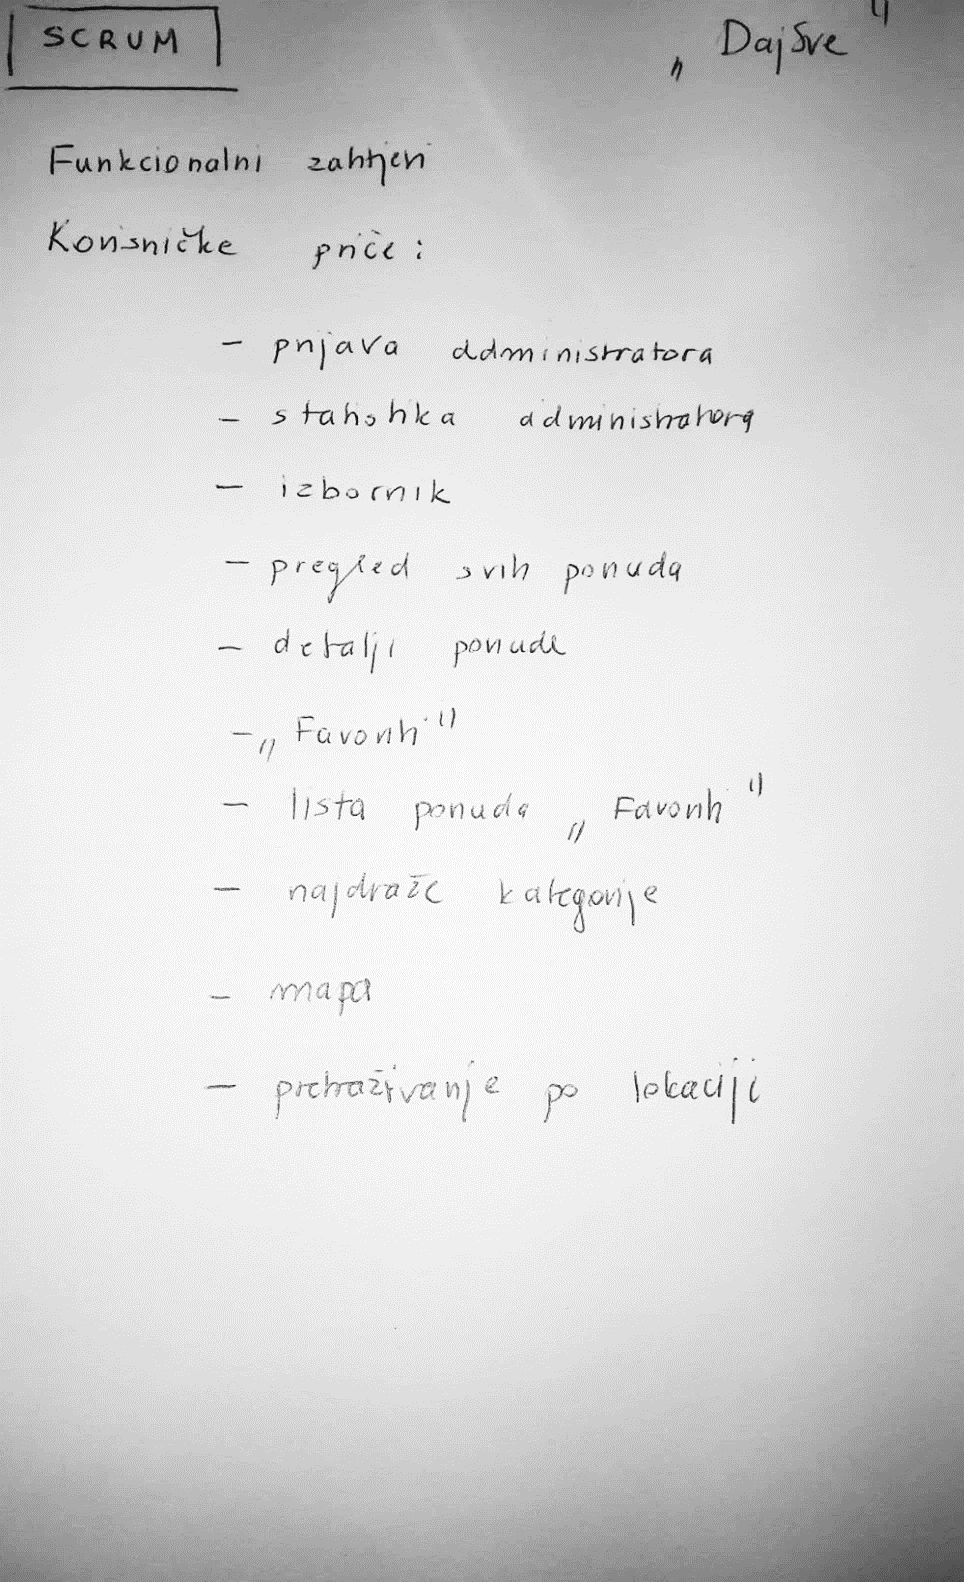 SCRUM
„DajSve"
Funkcionalni zahtjevi
Korisničke priče:
- prijava administratora
- statistika administratora
- izbornik
- pregled svih ponuda
- detalji ponude
- „Favoriti"
- lista ponuda „Favoriti"
- najdraže kategorije
- mapa
- pretraživanje po lokaciji